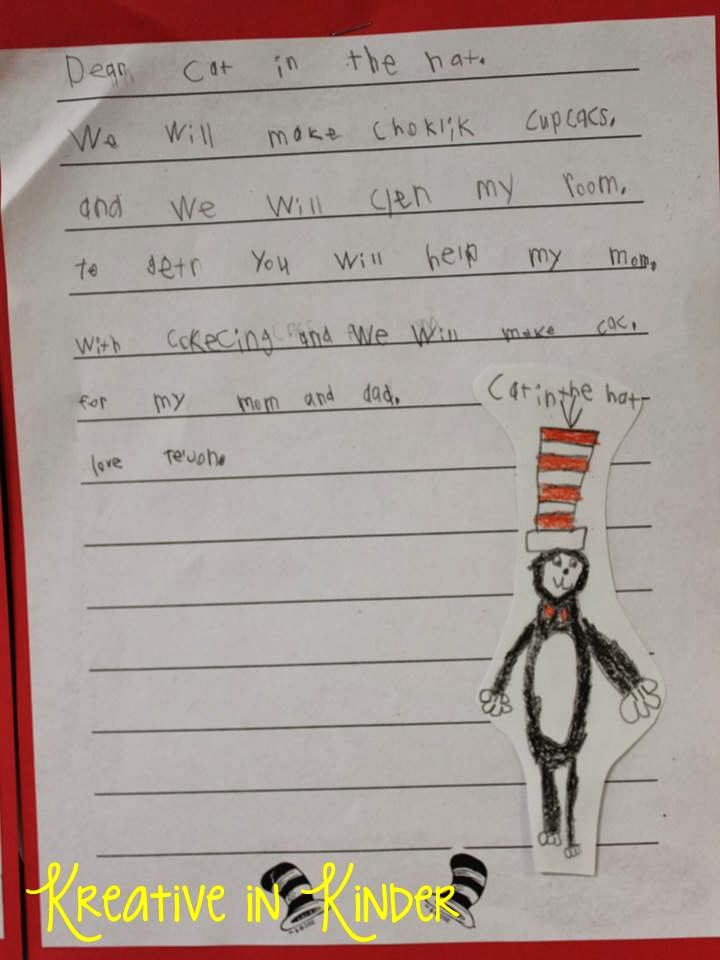 Dear cat in the hat.
We will make choklik cupcacs.
and we will clen my room.
to getr you will help my mom.
with cokecing and we will make cac.
for my mom and dad.
Cat in the hat
love
Kreative in Kinder